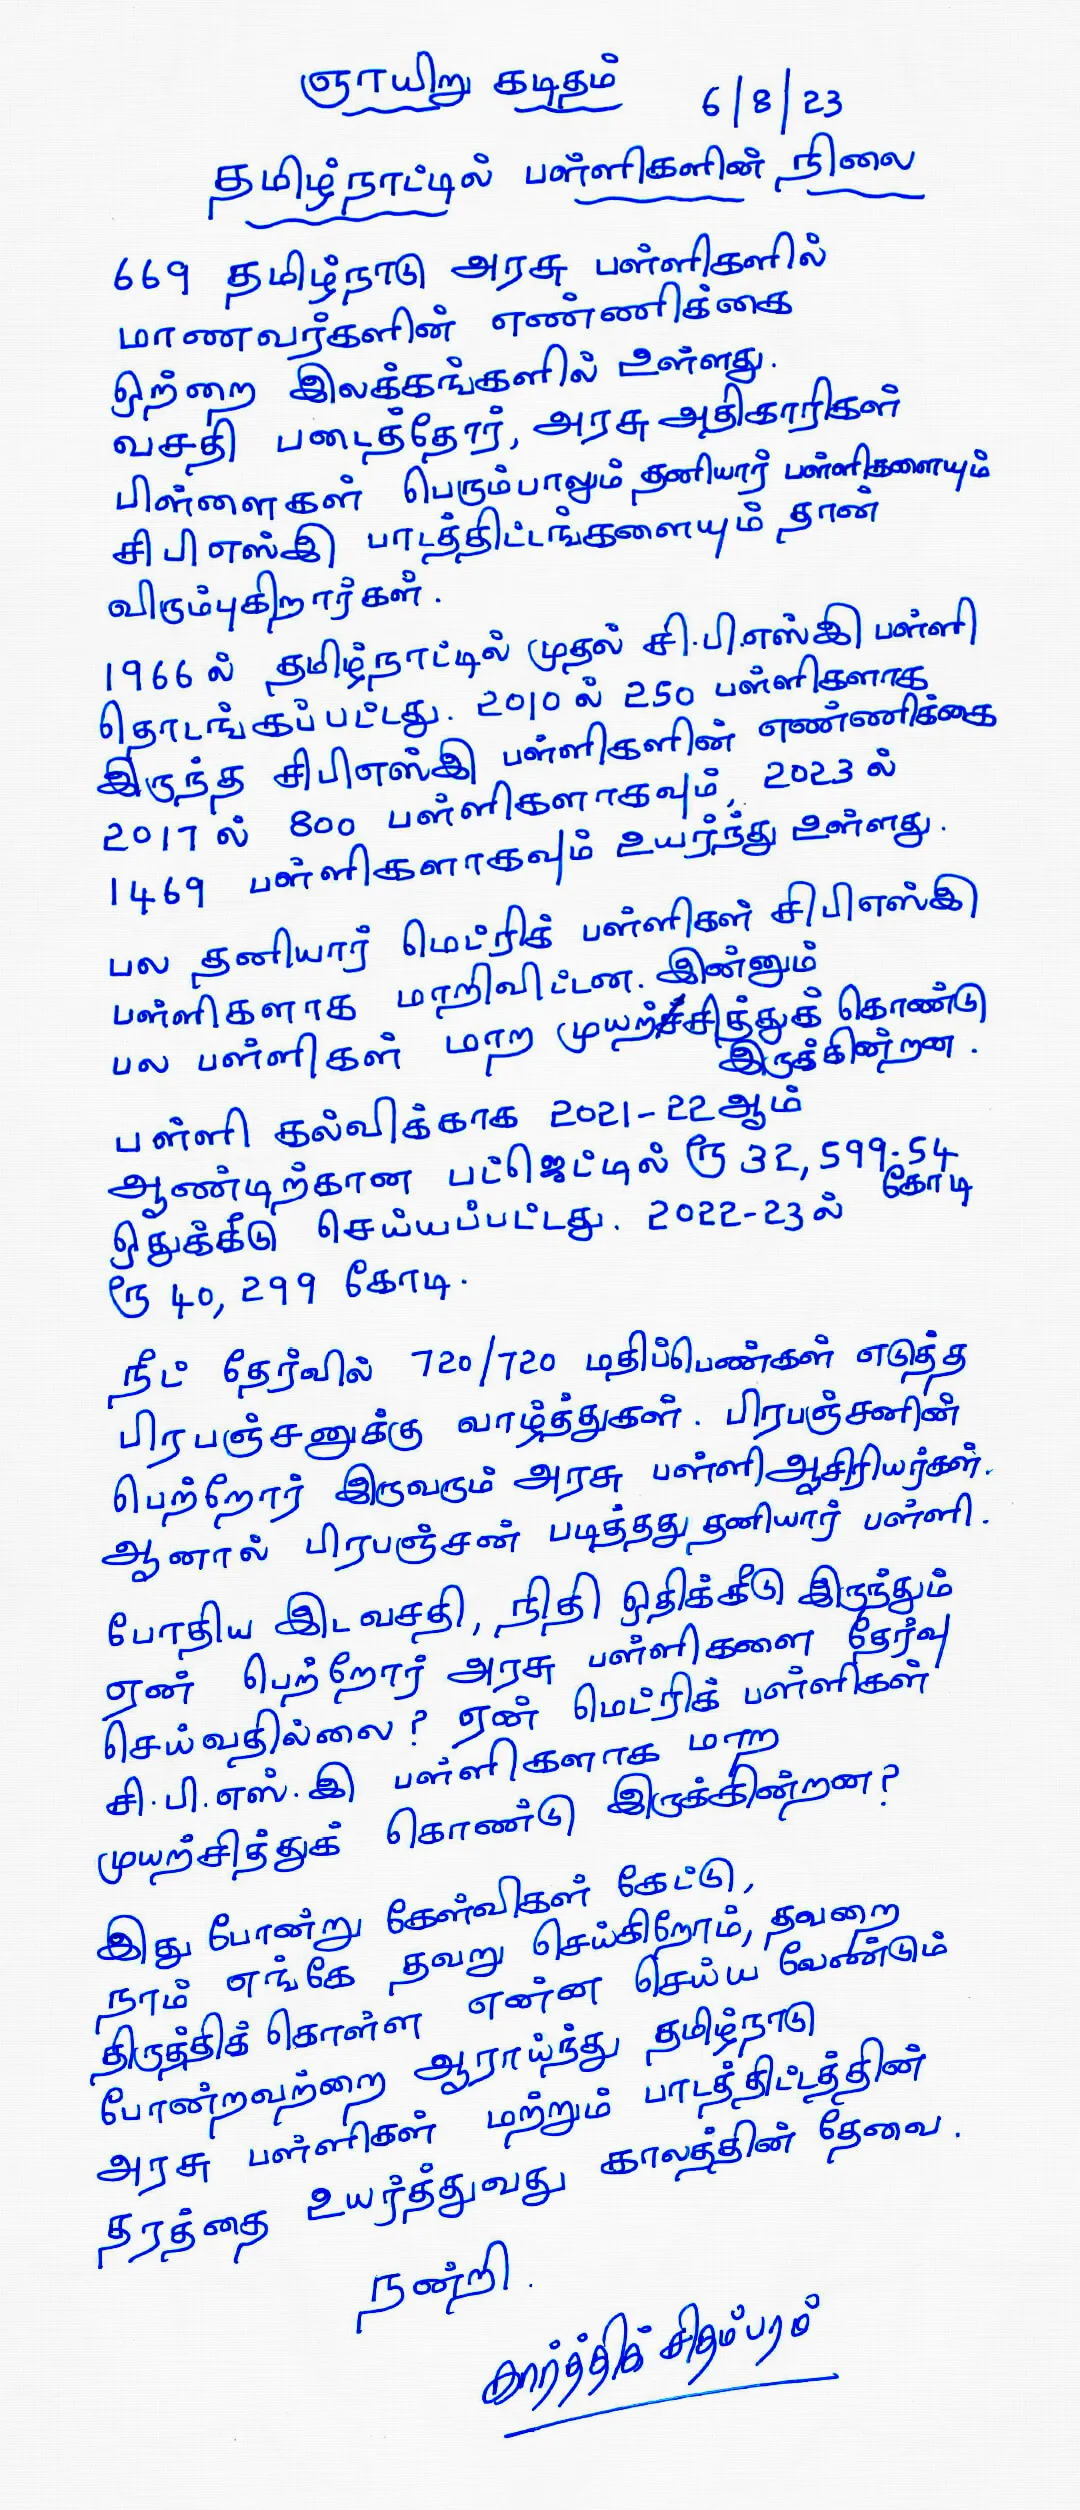 ஞாயிறு கடிதம் 6/8/23
தமிழ்நாட்டில் பள்ளிகளின் நிலை
669 தமிழ்நாடு அரசு பள்ளிகளில்
மாணவர்களின் எண்ணிக்கை
ஒற்றை இலக்கங்களில் உள்ளது.
வசதி படைத்தோர், அரசு அதிகாரிகள்
பிள்ளைகள் பெரும்பாலும் தனியார் பள்ளிகளையும்
சிபிஎஸ்இ பாடத்திட்டங்களையும் தான்
விரும்புகிறார்கள்.
1966ல் தமிழ்நாட்டில் முதல் சி.பி.எஸ்இ பள்ளி
தொடங்கப்பட்டது. 2010ல் 250 பள்ளிகளாக
இருந்த சிபிஎஸ்இ பள்ளிகளின் எண்ணிக்கை
2017ல் 800 பள்ளிகளாகவும், 2023ல்
1469 பள்ளிகளாகவும் உயர்ந்து உள்ளது.
பல தனியார் மெட்ரிக் பள்ளிகள் சிபிஎஸ்இ
பள்ளிகளாக மாறிவிட்டன. இன்னும்
பல பள்ளிகள் மாற முயற்சித்துக் கொண்டு
இருக்கின்றன.
பள்ளி கல்விக்காக 2021-22ஆம்
ஆண்டிற்கான பட்ஜெட்டில் ரூ 32,599.54
கோடி
ஒதுக்கீடு செய்யப்பட்டது. 2022-23ல்
ரூ 40,299 கோடி.
நீட் தேர்வில் 720/720 மதிப்பெண்கள் எடுத்த
பிரபஞ்சனுக்கு வாழ்த்துகள். பிரபஞ்சனின்
பெற்றோர் இருவரும் அரசு பள்ளி ஆசிரியர்கள்.
ஆனால் பிரபஞ்சன் படித்தது தனியார் பள்ளி.
போதிய இடவசதி, நிதி ஒதிக்கீடு இருந்தும்
ஏன் பெற்றோர் அரசு பள்ளிகளை தேர்வு
செய்வதில்லை? ஏன் மெட்ரிக் பள்ளிகள்
சி.பி.எஸ்.இ பள்ளிகளாக மாற
முயற்சித்துக் கொண்டு இருக்கின்றன?
இது போன்று கேள்விகள் கேட்டு,
நாம் எங்கே தவறு செய்கிறோம், தவறை
திருத்திக் கொள்ள என்ன செய்ய வேண்டும்
போன்றவற்றை ஆராய்ந்து தமிழ்நாடு
அரசு பள்ளிகள் மற்றும் பாடத்திட்டத்தின்
தரத்தை உயர்த்துவது காலத்தின் தேவை.
நன்றி.
கார்த்திக் சிதம்பரம்